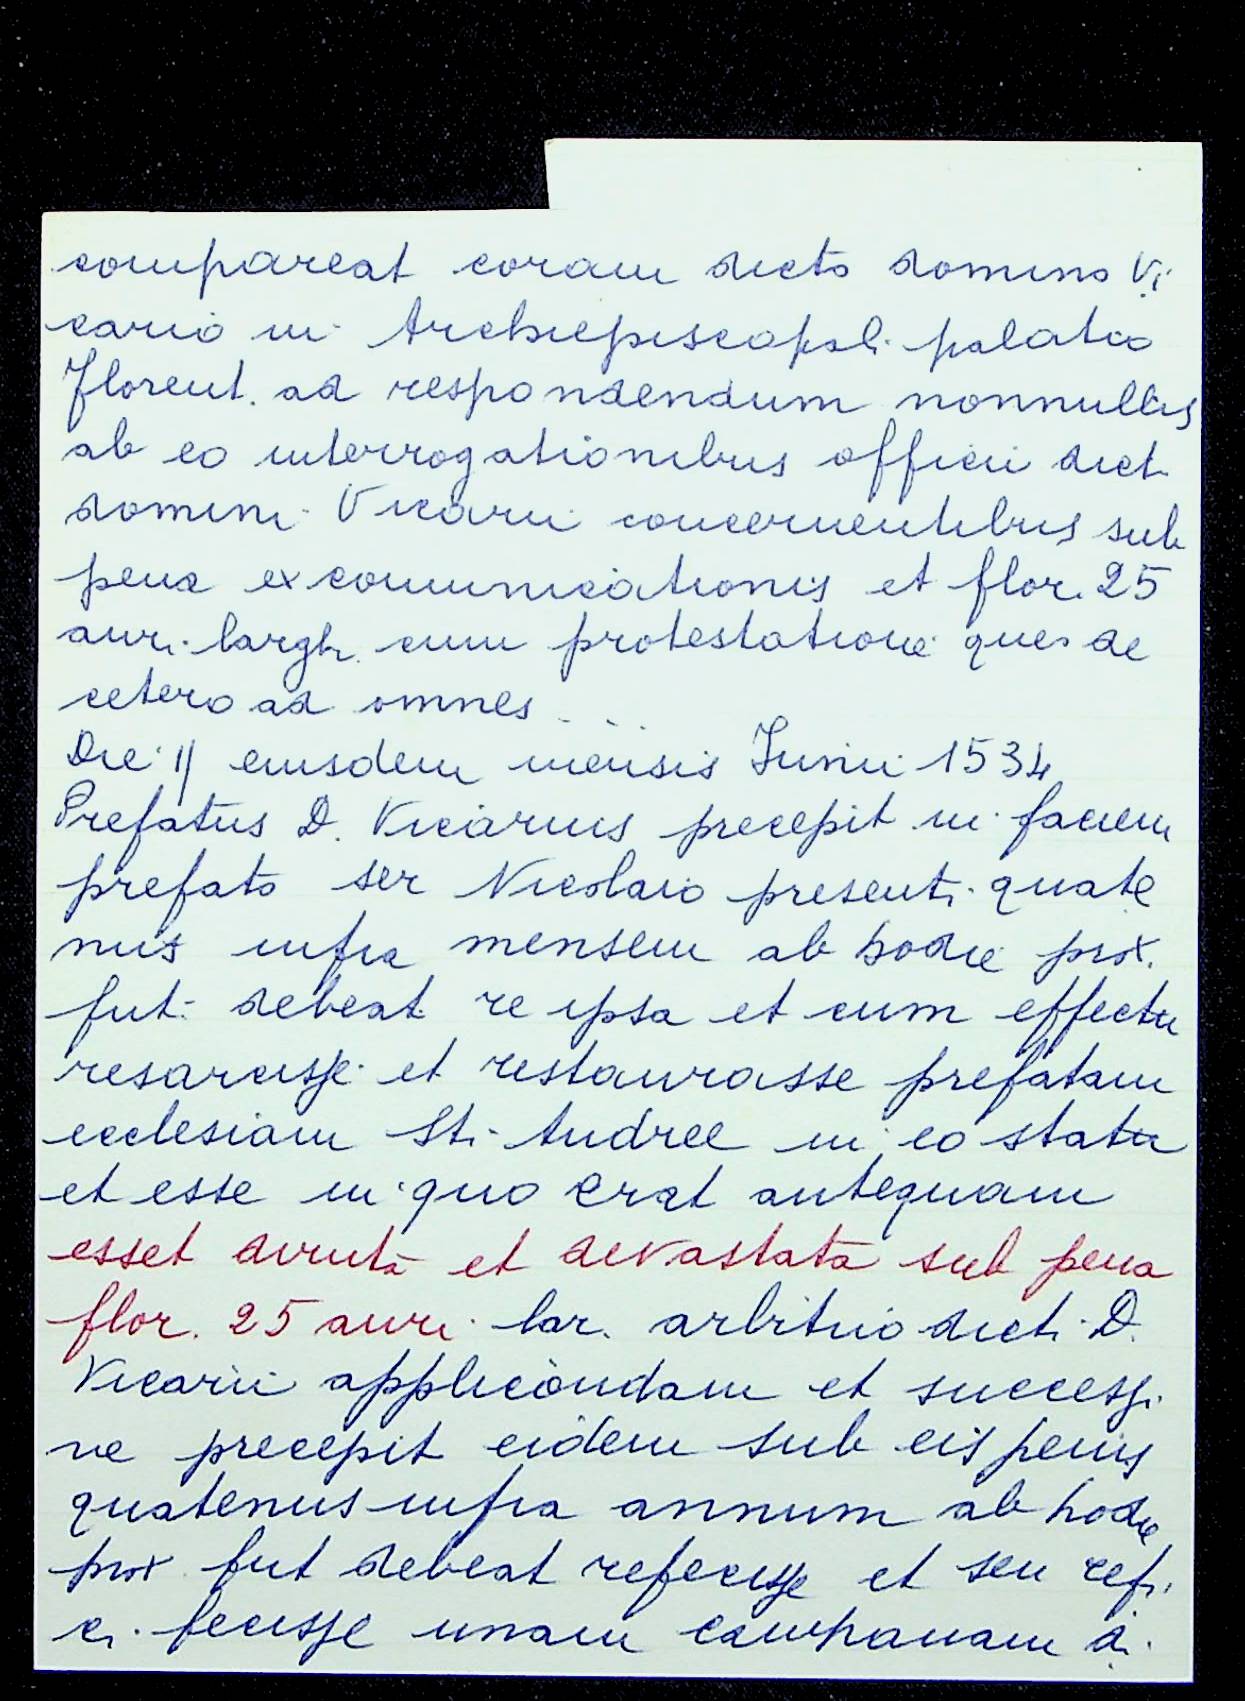 compareat coram dicto domino Vi
cario in Archiepiscopali palatio
Florent. ad respondendum nonnullis
ab eo interrogationibus officii dict.
domini Vicarii concernentibus sub
pena excomunicationis et flor. 25
auri largh. cum protestatione ques de
cetero ad omnes ...
Die 11 eiusdem mensis Junii 1534
Prefatus D. Vicarius precepit in faciem
prefato ser Nicolaio presenti quate
nus infra mensem ab hodie prox.
fut. debeat re ipsa et cum effectu
resarcisse et restaurasse prefatam
ecclesiam Sti Andree in eo statu
et esse in quo erat antequam
esset diruta et devastata sub pena
flor. 25 auri lar. arbitrio dicti D.
Vicarii applicandam et successi
ve precepit eidem sub eis penis
quatenus infra annum ab hodie
prox fut debeat refecisse et seu refi
ci fecisse unam campanam di